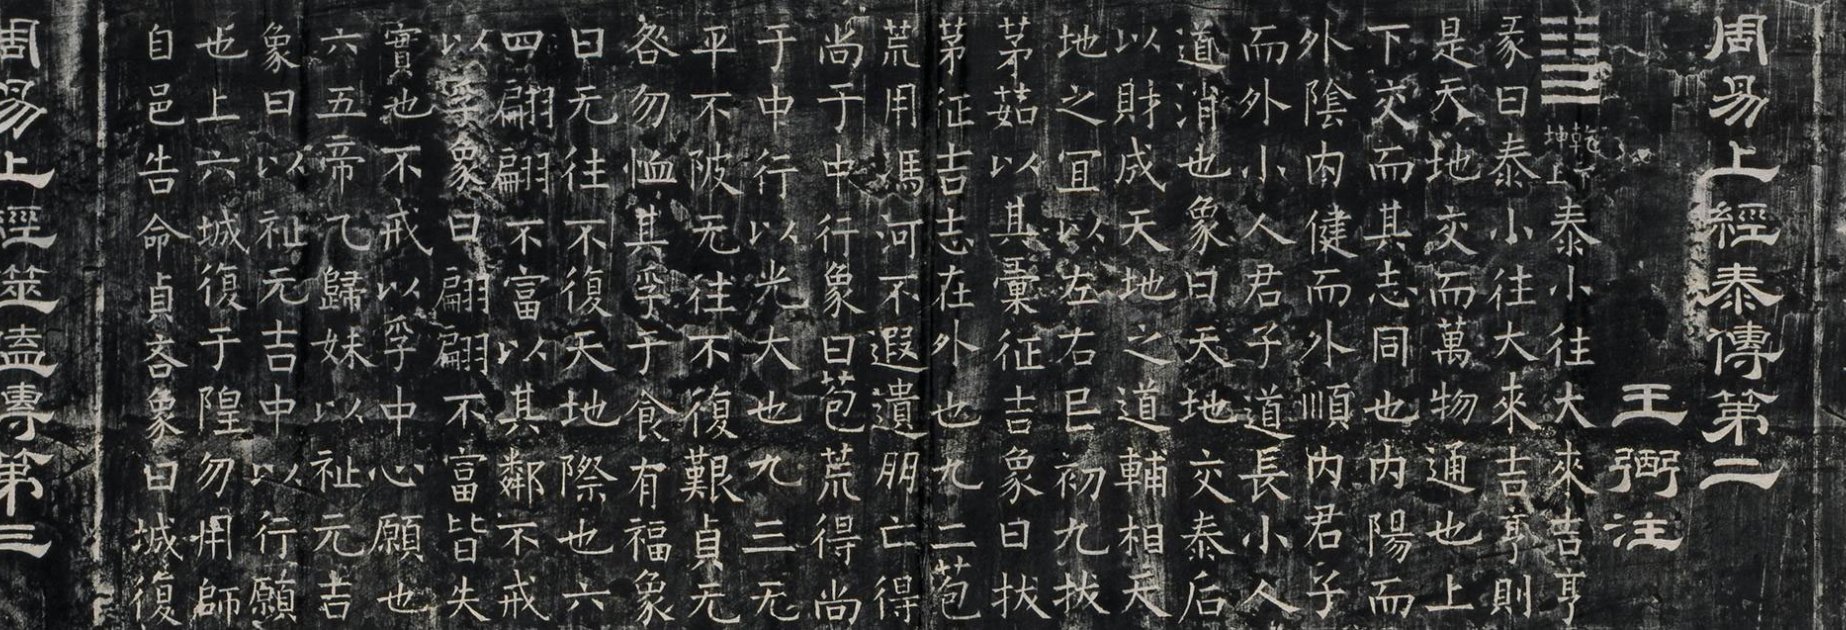 周易上經泰傳第二
王弼注
䷊乾下坤上泰小往大來吉亨
彖曰泰小往大來吉亨則
是天地交而萬物通也上
下交而其志同也内陽而
外陰内健而外順内君子
而外小人君子道長小人
道消也象曰天地交泰后
以財成天地之道輔相天
地之宜以左右民初九拔
茅茹以其彙征吉象曰拔
茅征吉志在外也九二苞
荒用馮河不遐遺朋亡得
尚于中行象曰苞荒得尚
于中行以光大也九三无
平不陂无往不復艱貞无
咎勿恤其孚于食有福象
曰无往不復天地際也六
四翩翩不富以其鄰不戒
以孚象曰翩翩不富皆失
實也不戒以孚中心願也
六五帝乙歸妹以祉元吉
象曰以祉元吉中以行願
也上六城復于隍勿用師
自邑告命貞吝象曰城復
周易上經噬嗑傳第三